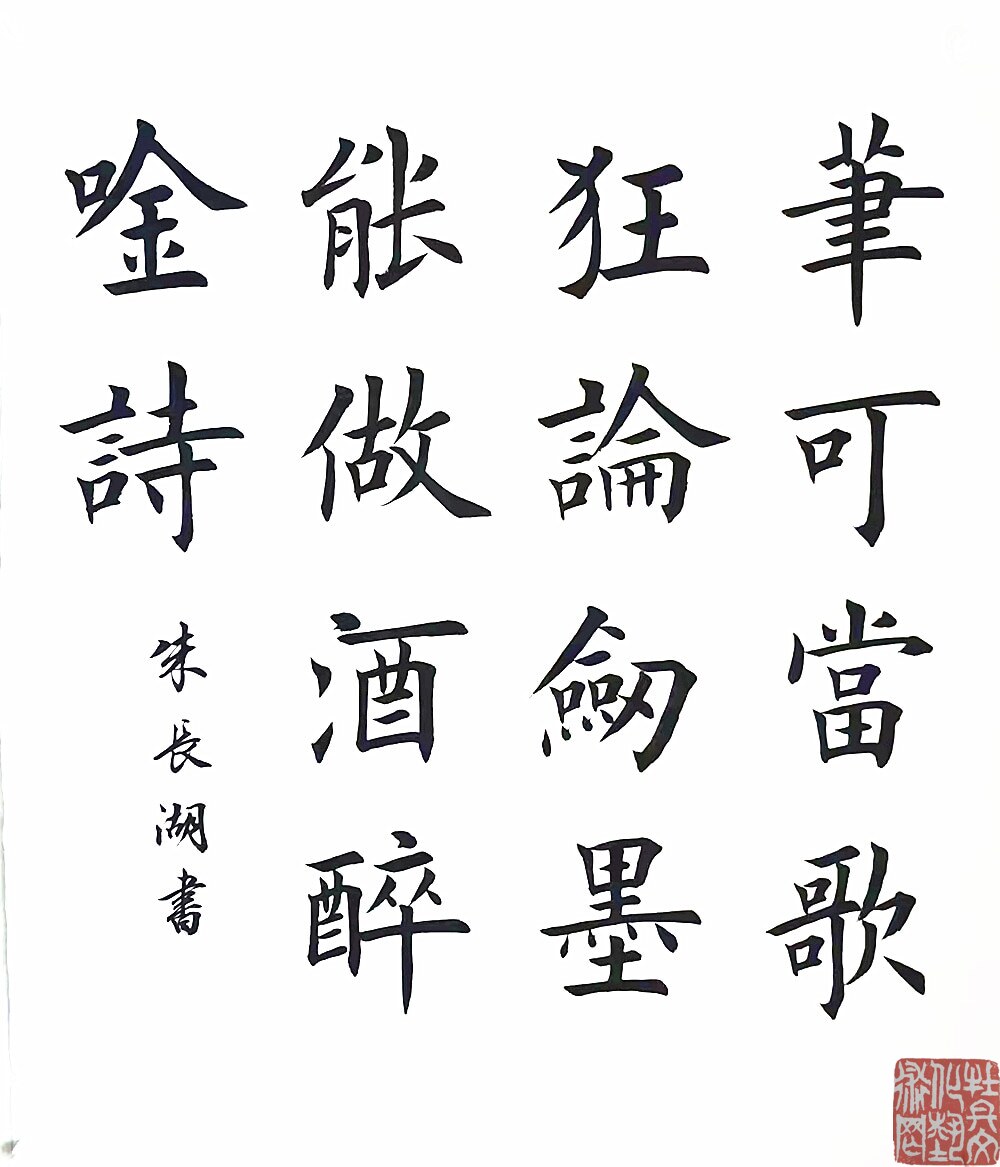 筆可當歌
狂論劔墨
能做酒醉
唫詩
朱長湖書